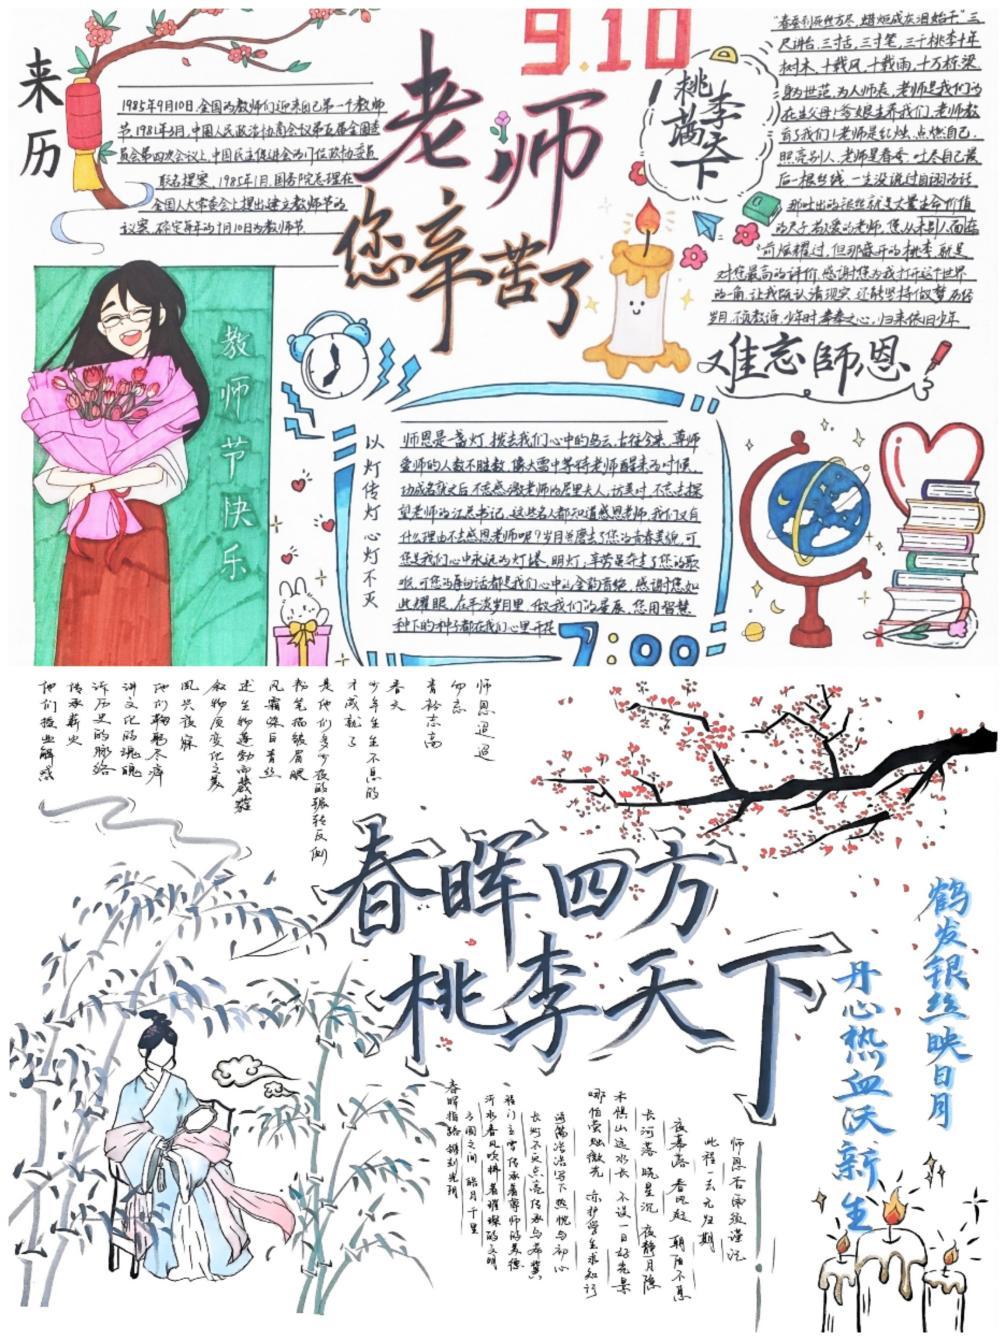 来历
1985年9月10日,全国为教师们迎来自己第一个教师
节,1981年3月,中国人民政治协商会议第五届全国委
员会第四次会议上,中国民主促进会为门位政协委员
联名提案,1985年1月,国务院总理在
全国人大常委会上提出建立教师节的
议案,确定每年的9月10日为教师节
9.10
老师
您辛苦了
桃李
满天
下
"春蚕到死丝方尽,蜡炬成灰泪始干"三
尺讲台,三寸舌,三寸笔,三千桃李十年
树木,十载风,十载雨,十万栋梁
身为世范,为人师表,老师是我们的
在生父母!爹娘生养我们,老师教
育了我们!老师是红烛,点燃自己,
照亮别人,老师是春蚕,吐尽自己最
后一根丝线,一生没说过自诩的话
那吐出的银丝就是丈量生命价值
的尺子,敬爱的老师,您从未别人面在
前炫耀过,但那盛开的桃李,就是
对您最高的评价,感谢您为我打开这个世界
的一角,让我既认清现实,还能坚持做梦,历经
岁月,不负教诲,少年时青春之心,归来依旧少年
难忘師恩
教师节快乐
以灯传灯心灯不灭
师恩是一盏灯,拨去我们心中的乌云,古往今来,尊师
爱师的人数不胜数,像大雪中等待老师醒来的时候,
功成名就之后,不忘感激老师的居里夫人,访美时,不忘去探
望老师的江总书记,这些名人都知道感恩老师,我们又有
什么理由不去感恩老师呢?岁月若磨去了您的青春美貌,可
您是我们心中永远的灯塔,明灯;辛劳虽夺走了您的歌
喉,可您的每句话都是我们心中的金韵音符,感谢您如
此耀眼,在平淡岁月里,做我们的星辰,您用智慧
种下的种子都在我们心里开花
7:00
师恩迢迢
勿忘
青衿志高
春天
少年生生不息的
才成就了
是他们多少夜的辗转反侧
粉笔描皱眉眼
风霜染白青丝
述生物蓬勃而葳蕤
叙物质变化之美
夙兴夜寐
他们鞠躬尽瘁
讲文化的瑰魄
诉历史的脉络
传承薪火
他们授业解惑
春晖四方
桃李天下
鹤发银丝映日月
丹心热血沃新生
师恩大雨须谨记
此程一去无归期
夜幕落 春风起 朝阳不息
长河落 晓星沉 夜静月隐
不惧山远水长 不误一日好光景
哪怕萤烛微光 亦护学生求知行
洋洋洒洒写下热忱与初心
长灯不灭点亮传承与希冀
程门立雪传承着尊师的美德
沂水春风吹拂着璀璨的文明
方圆之间 皓月千里
春晖指路镌刻光阴